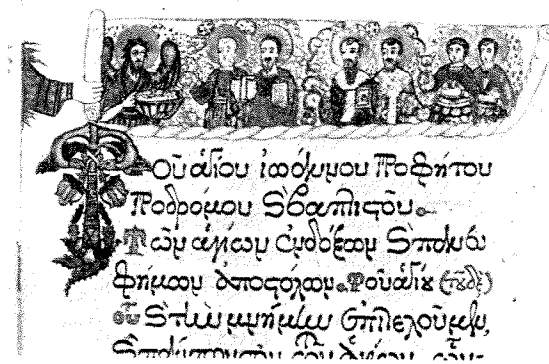 Τοῦ ἁγίου ἰωάννου Προφήτου
Προδρόμου ϗ βαπτιστοῦ.
Τῶν ἁγίων ἐνδόξων ϗ πανευ
φήμων ἀποστόλων. Τοῦ ἁγίου (τοῦδε)
οὗ ϗ τὴν μνήμην ἐπιτελοῦμεν,
ϗ πάντων τῶν ἁγίων